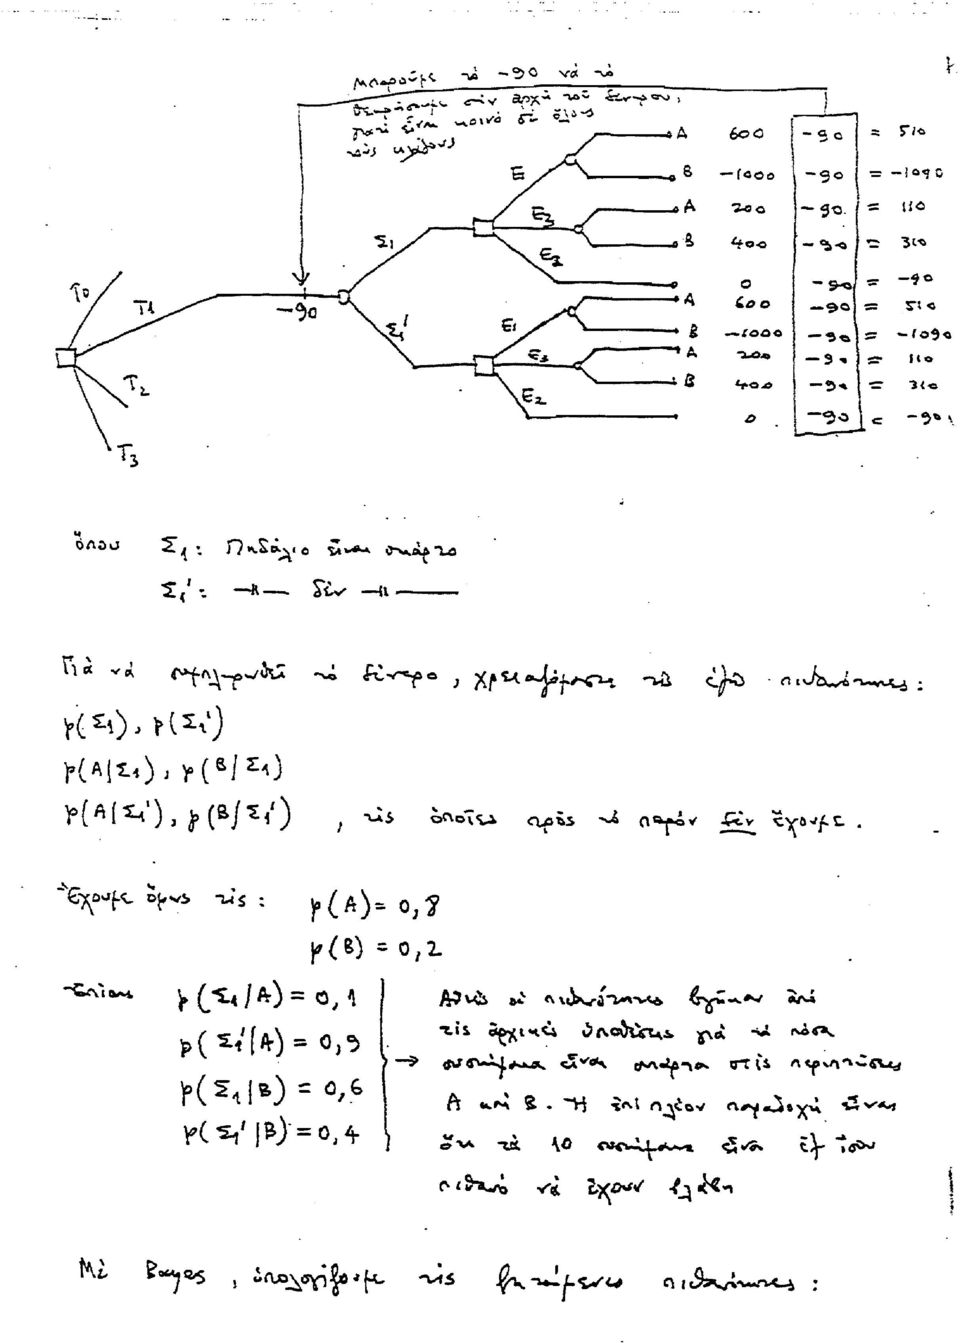 Μπορούμε τό -90 νά τό
θεωρήσουμε στήν ἀρχή τοῦ δένδρου,
γιατί εἶναι κοινό σέ ὅλους
τούς κλάδους
A 600 -90 = 510
E B -1000 -90 = -1090
E3 A 200 -90 = 110
Σ1 B 400 -90 = 310
E2 0 -90 = -90
T0 T1 -90 A 600 -90 = 510
Σ1' E1 B -1000 -90 = -1090
E3 A 200 -90 = 110
T2 B 400 -90 = 310
E2 0 -90 = -90
T3
ὅπου Σ1: Πηδάλιο εἶναι σκάρτο
Σ1': —〃— δέν —〃—
Γιά νά συμπληρωθεῖ τό δένδρο, χρειαζόμαστε τίς ἑξῆς πιθανότητες:
p(Σ1), p(Σ1')
p(A|Σ1), p(B/Σ1)
p(A|Σ1'), p(B/Σ1'), τίς ὁποῖες πρός τό παρόν δέν ἔχουμε.
Ἔχουμε ὅμως τίς: p(A)=0,8
p(B)=0,2
Ἐπίσης p(Σ1/A)=0,1
p(Σ1'|A)=0,9
p(Σ1|B)=0,6
p(Σ1'|B)=0,4
Αὐτές οἱ πιθανότητες βγῆκαν ἀπό
τίς ἀρχικές ὑποθέσεις γιά τό πόσα
συστήματα εἶναι σκάρτα στίς περιπτώσεις
A καί B. Ἡ ἐπί πλέον παραδοχή εἶναι
ὅτι τά 10 συστήματα εἶναι ἐξ ἴσου
πιθανό νά ἔχουν βλάβη
Μέ Bayes, ὑπολογίζουμε τίς ζητούμενες πιθανότητες: